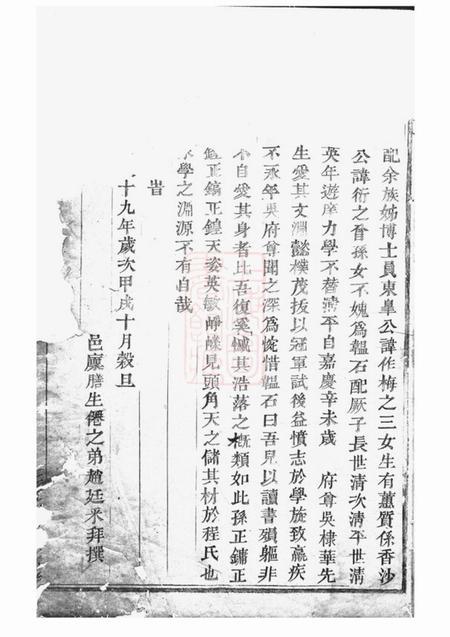 配余族姊博士員東臯公諱作梅之三女生有蕙質係香沙
公諱衍之曾孫女不媿爲韞石配厥子長世清次清平世清
英年遊庠力學不替清平自嘉慶辛未歲 府尊吳棣華先
生愛其文淵懿樸茂抜以冠軍試後益憤志於學旋致羸疾
不永年吳府尊聞之深爲惋惜韞石曰吾兒以讀書殞軀非
不自愛其身者比吾復奚憾其浩落之概類如此孫正鏞正
正鎬正鍠天姿英敏崢嶸見頭角天之儲其材於程氏也
學之淵源不有自哉
旹
十九年歲次甲戌十月穀旦
邑廩膳生僊之弟趙廷米拜撰